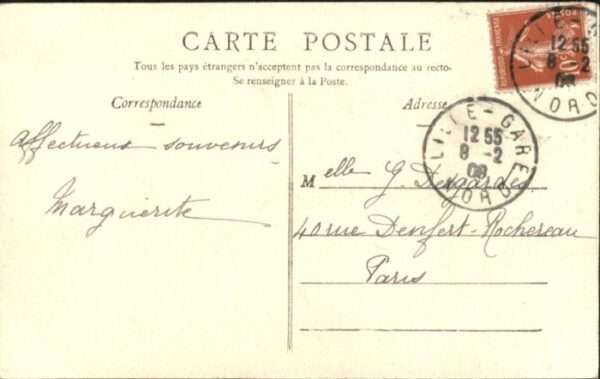 CARTE POSTALE
Tous les pays étrangers n'acceptent pas la correspondance au recto-
Se renseigner à la Poste.
Correspondance
Adresse
Affectueux souvenirs
Marguerite
Melle G.
40 rue Denfert-Rochereau
Paris
LILLE-GARE
12 55
8 -2
08
NORD
12 55
8 -2
NORD
10